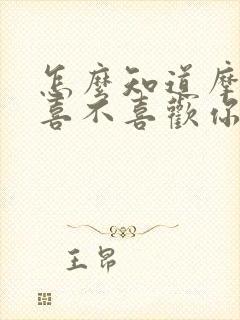 怎麼知道摩
喜不喜歡你
王昂